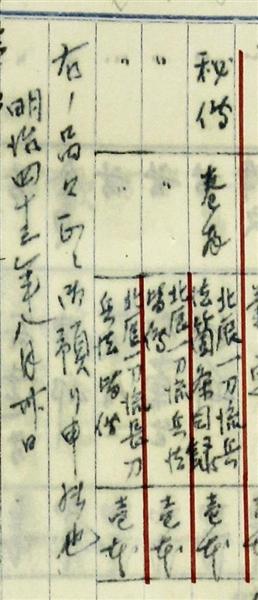 秘傳 巻存 北辰一刀流兵法箇条目録 壱本
〃 〃 北辰一刀流兵法皆傳 壱本
〃 〃 北辰一刀流長刀兵法皆傳 壱本
右ノ品々正ニ御預リ申候也
明治四十三年八月 日